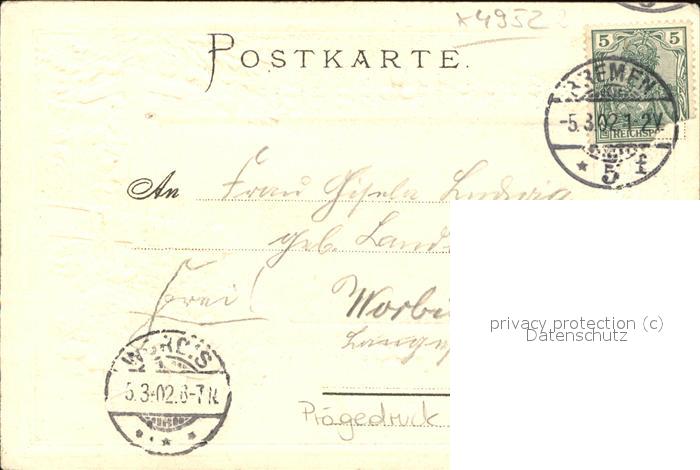 x4952
POSTKARTE.
5 5
REICHSPO
BREMEN
-5.3.02.1-2V.
* 5 f
An Frau Gisela Ludwig
geb. Land
frei!
Worbi
Lang
5.3.02.6-7N.
Prägedruck
privacy protection (c)
Datenschutz